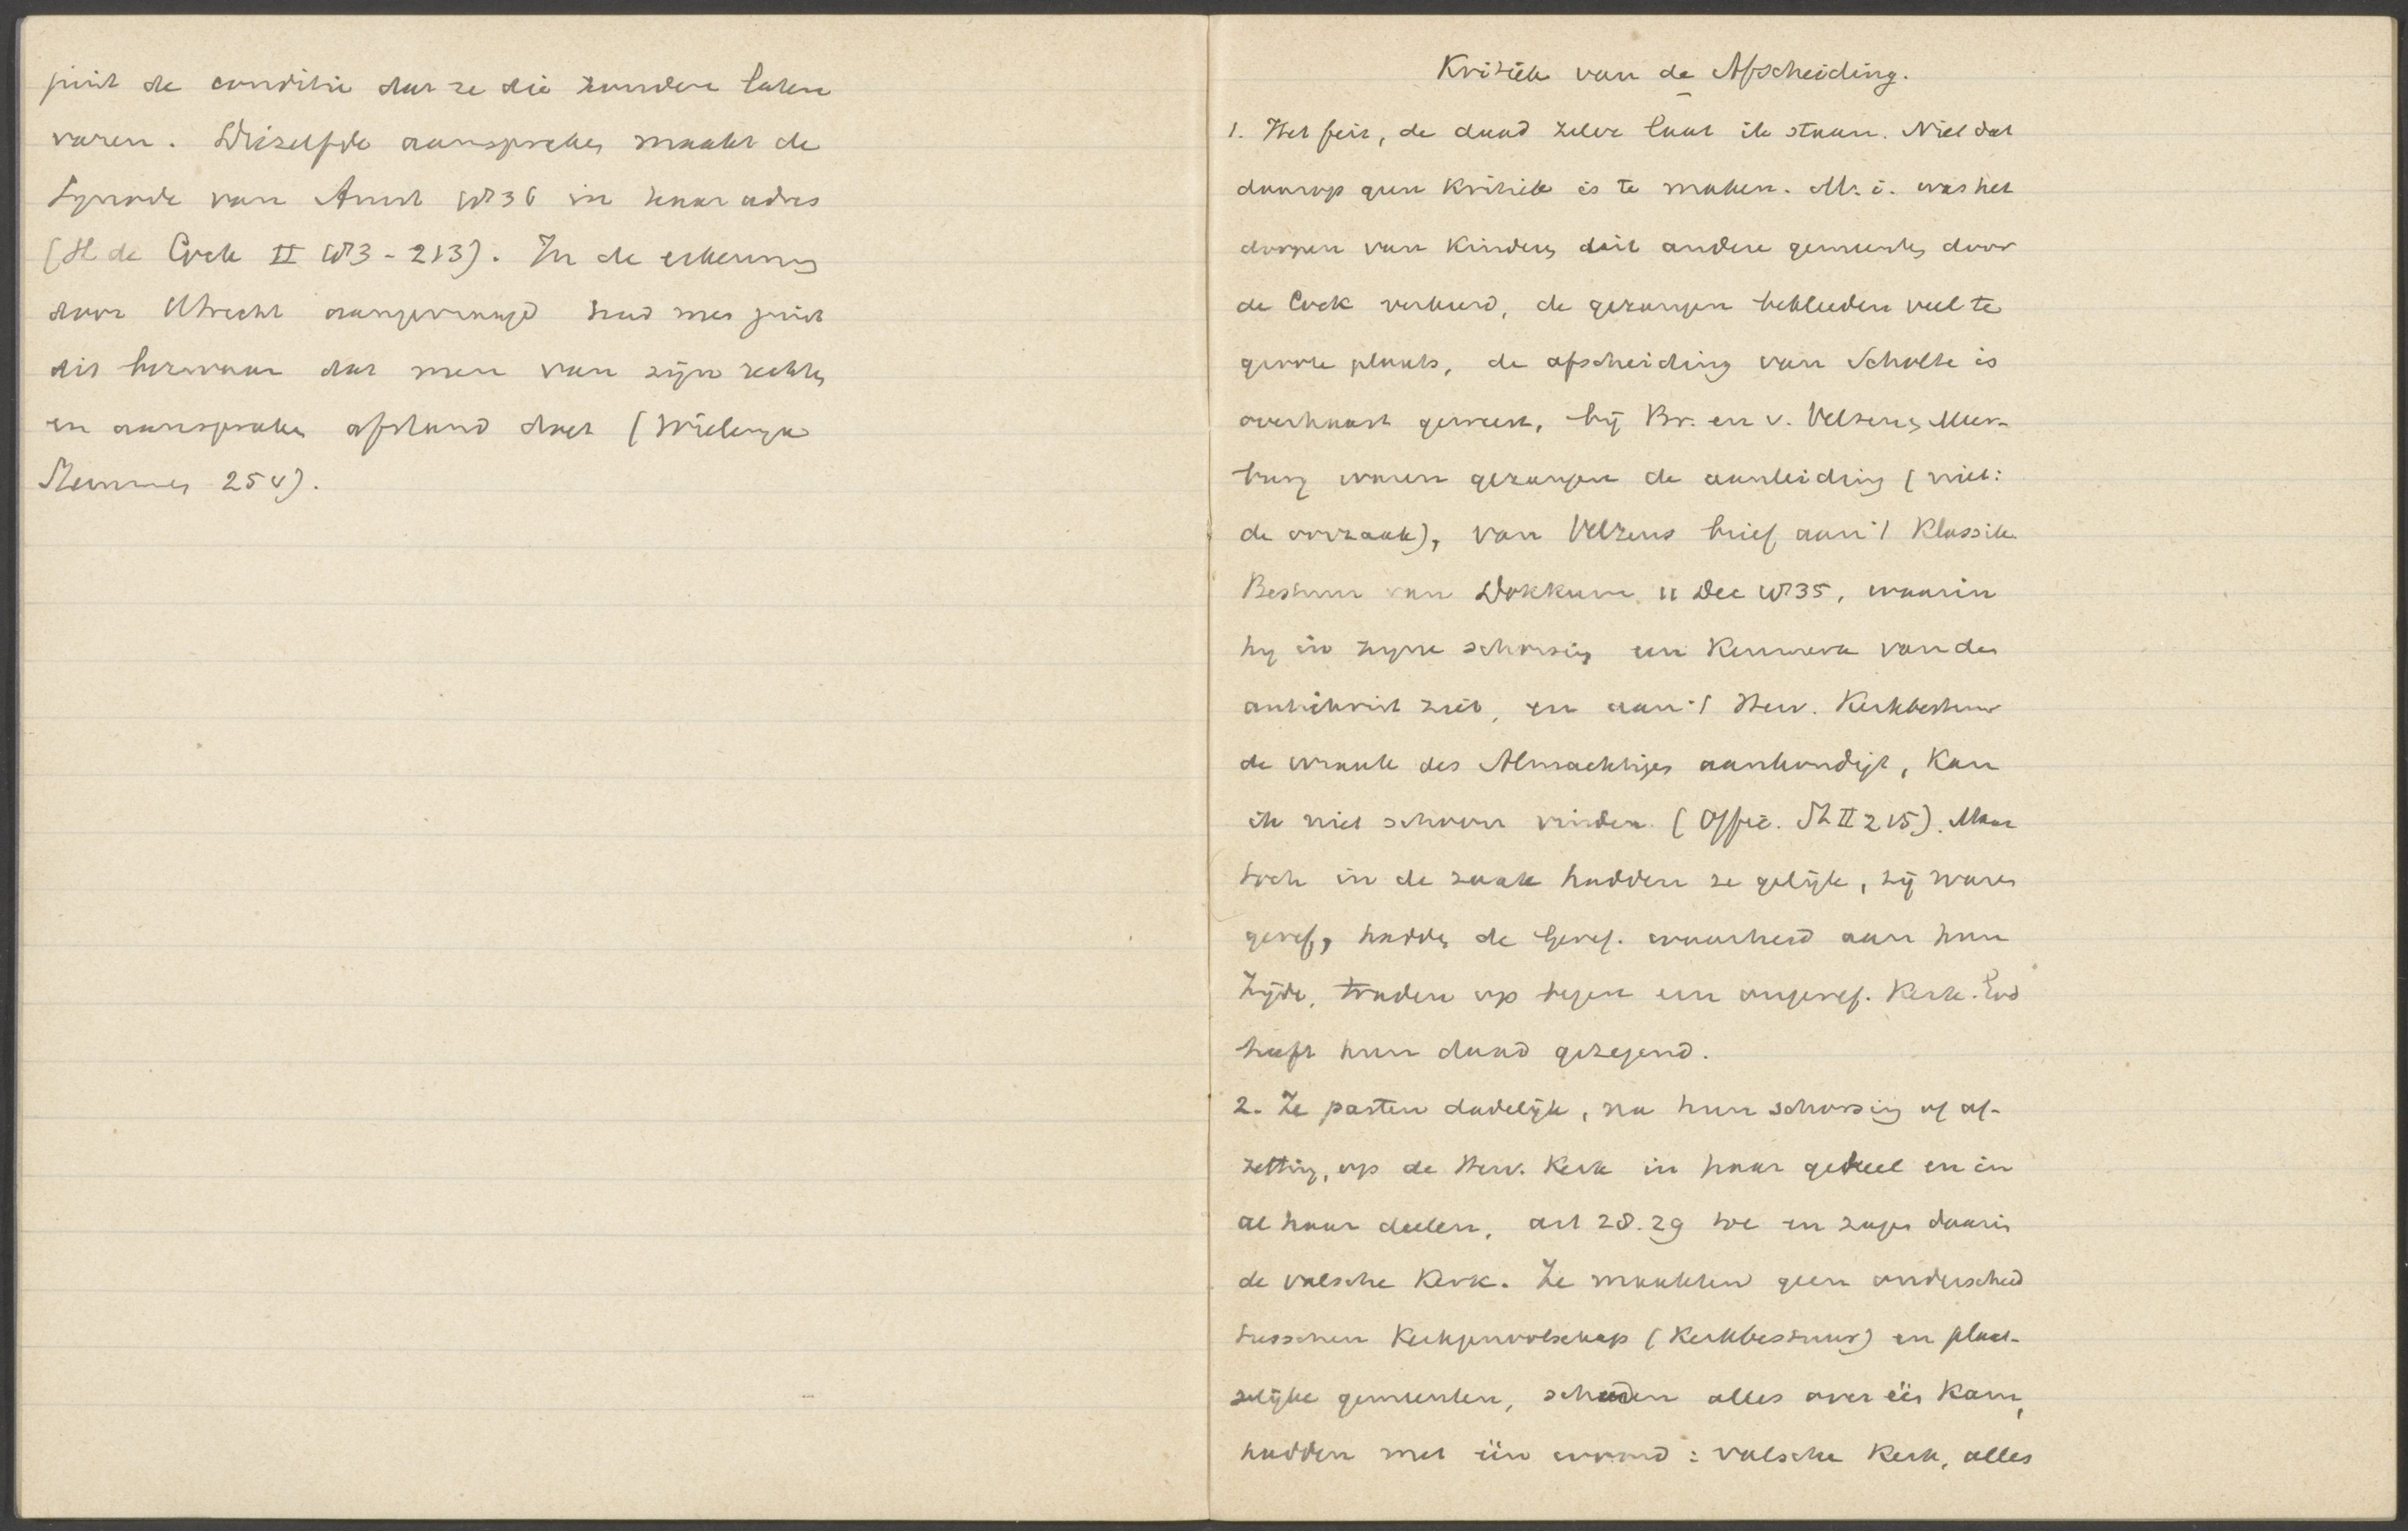 juist de conditie dat ze die zouden laten
varen. Diezelfde aanspraken maakt de
Synode van Amst 1836 in haar adres
(H de Cock II 183-213). In de erkenning
door Utrecht aangevraagd had men juist
dit bezwaar dat men van zijn rechten
en aanspraken afstand doet (Wielenga
Stemmen 254).
Kritiek van de Afscheiding.
1. Het feit, de daad zelve laat ik staan. Niet dat
daarop geen kritiek is te maken. M. i. was het
doopen van kinderen uit andere gemeenten door
de Cock verkeerd, de gezangen bekleeden veel te
groote plaats, de afscheiding van Scholte is
overhaast geweest, bij Br. en v. Velzen, Meer-
burg waren gezangen de aanleiding (niet:
de oorzaak), van Velzens brief aan 't Klassik.
Bestuur van Dokkum 11 Dec 1835, waarin
hij in zijne schorsing een kenmerk van den
antichrist ziet, en aan 't Herv. Kerkbestuur
de wraak des Almachtigen aankondigt, kan
ik niet schoon vinden (Offic. St II 215). Maar
toch in de zaak hadden ze gelijk, zij waren
geref., hadden de Geref. waarheid aan hun
zijde, traden op tegen een ongeref. kerk. God
heeft hun daad gezegend.
2. Ze pasten dadelijk, na hun schorsing of af-
zetting, op de Herv. Kerk in haar geheel en in
al haar deelen, art 28. 29 toe en zagen daarin
de valsche Kerk. Ze maakten geen onderscheid
tusschen Kerkgenootschap (Kerkbestuur) en plaat-
selijke gemeenten, scheerden alles over één kam,
hadden met één woord: valsche Kerk, alles